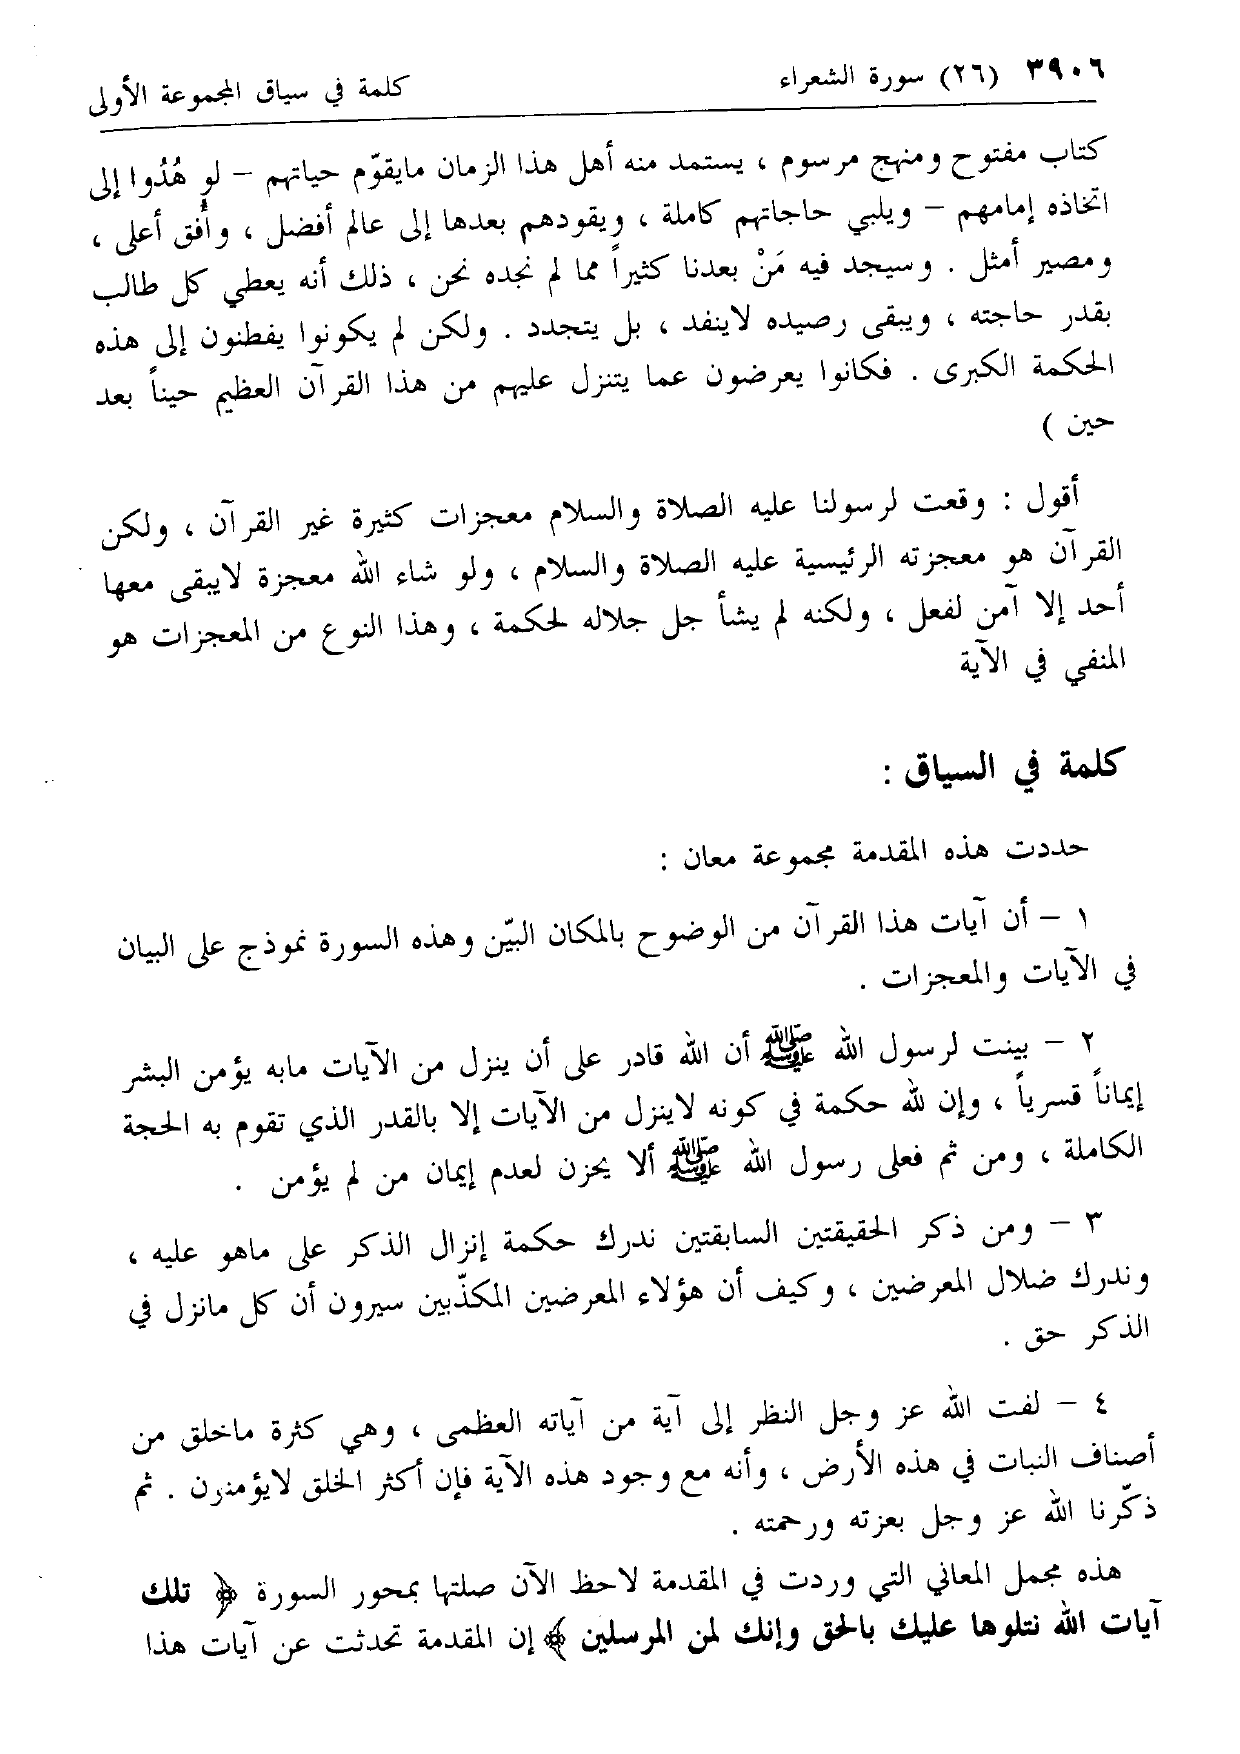 ٣٩٠٦ (٢٦) سورة الشعراء كلمة في سياق المجموعة الأولى
كتاب مفتوح ومنهج مرسوم ، يستمد منه أهل هذا الزمان مايقوّم حياتهم – لو هُدُوا إلى
اتخاذه إمامهم – ويلبي حاجاتهم كاملة ، ويقودهم بعدها إلى عالم أفضل ، وأُفق أعلى ،
ومصير أمثل . وسيجد فيه مَنْ بعدنا كثيراً مما لم نجده نحن ، ذلك أنه يعطي كل طالب
بقدر حاجته ، ويبقى رصيده لاينفد ، بل يتجدد . ولكن لم يكونوا يفطنون إلى هذه
الحكمة الكبرى . فكانوا يعرضون عما يتنزل عليهم من هذا القرآن العظيم حيناً بعد
حين )
أقول : وقعت لرسولنا عليه الصلاة والسلام معجزات كثيرة غير القرآن ، ولكن
القرآن هو معجزته الرئيسية عليه الصلاة والسلام ، ولو شاء الله معجزة لايبقى معها
أحد إلا آمن لفعل ، ولكنه لم يشأ جل جلاله لحكمة ، وهذا النوع من المعجزات هو
المنفي في الآية
كلمة في السياق :
حددت هذه المقدمة مجموعة معان :
١ – أن آيات هذا القرآن من الوضوح بالمكان البيّن وهذه السورة نموذج على البيان
في الآيات والمعجزات .
٢ – بينت لرسول الله ﷺ أن الله قادر على أن ينزل من الآيات مابه يؤمن البشر
إيماناً قسرياً ، وإن لله حكمة في كونه لاينزل من الآيات إلا بالقدر الذي تقوم به الحجة
الكاملة ، ومن ثم فعلى رسول الله ﷺ ألا يحزن لعدم إيمان من لم يؤمن .
٣ – ومن ذكر الحقيقتين السابقتين ندرك حكمة إنزال الذكر على ماهو عليه ،
وندرك ضلال المعرضين ، وكيف أن هؤلاء المعرضين المكذّبين سيرون أن كل مانزل في
الذكر حق .
٤ – لفت الله عز وجل النظر إلى آية من آياته العظمى ، وهي كثرة ماخلق من
أصناف النبات في هذه الأرض ، وأنه مع وجود هذه الآية فإن أكثر الخلق لايؤمنرن . ثم
ذكّرنا الله عز وجل بعزته ورحمته .
هذه مجمل المعاني التي وردت في المقدمة لاحظ الآن صلتها بمحور السورة ﴿ تلك
آيات الله نتلوها عليك بالحق وإنك لمن المرسلين ﴾ إن المقدمة تحدثت عن آيات هذا